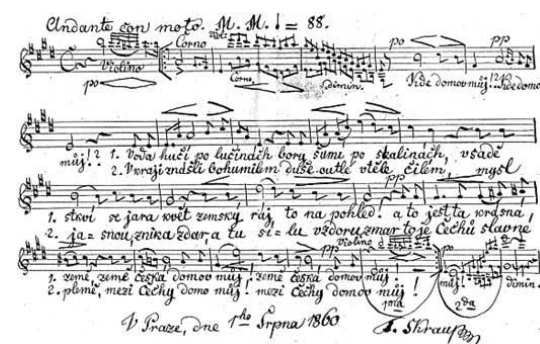 Andante con moto. M. M. ♩ = 88.
Violino Corno Viol:
po Corno dimin. po pp
Kde domov můj!? Kde domo
můj!? 1. Voda hučí po lučinách bory šumí po skalinách, v sadě
2. V kraji znáš-li bohumilém duše outlé v těle čilém, mysl
1. stkví se jara květ zemský ráj to na pohled! a to jest ta krásná,
2. ja=snou, znik a zdar, a tu sí=lu vzdoru zmar to je Čechů slavné
Violino po pp
1. země, země česká domov můj, země česká domov můj!
2. plémě, mezi Čechy domov můj! mezi Čechy domov můj!
můj! dimin.
1ma 2da
V Praze, dne 1ho Srpna 1860 F. Škroup